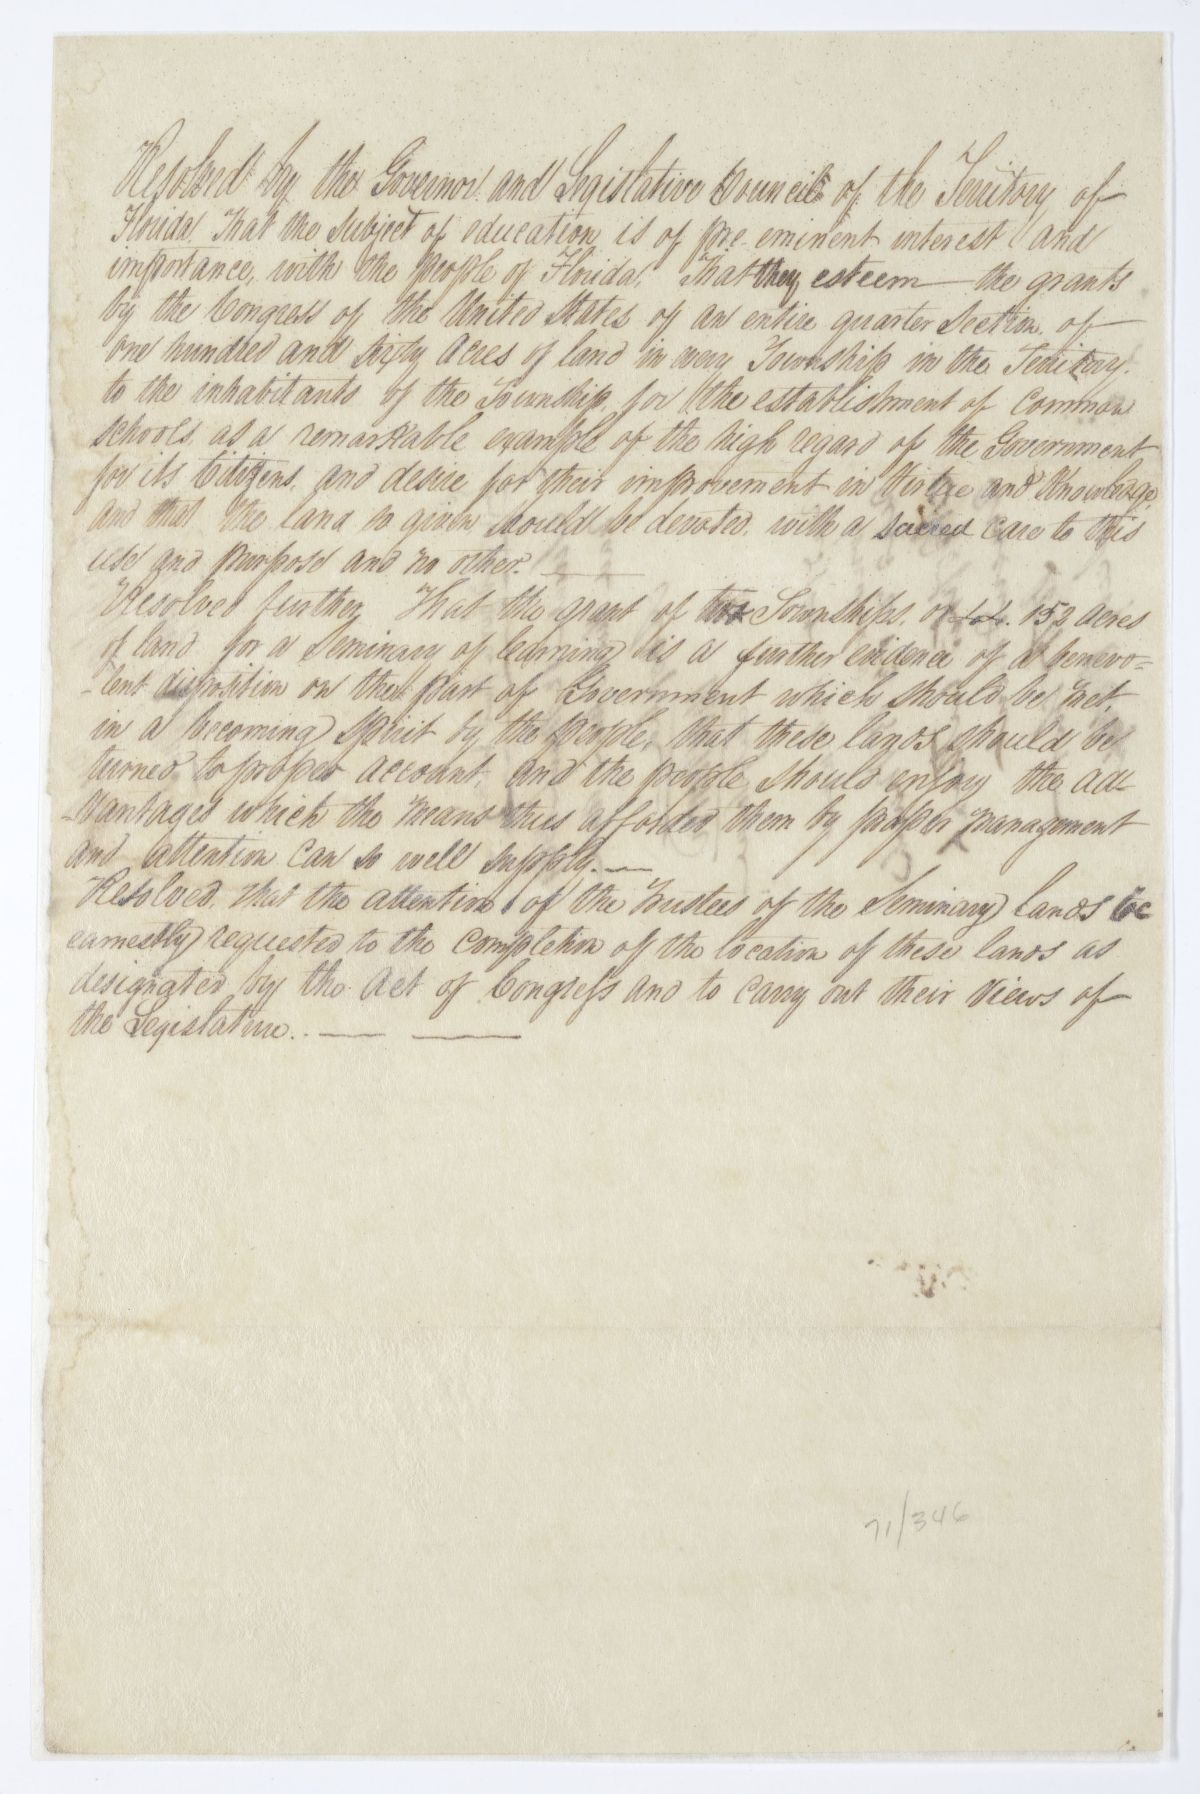 Resolved by the Governor and Legislative Council of the Territory of
Florida That the Subject of education is of pre-eminent interest and
importance, with the people of Florida, That they esteem the grants
by the Congress of the United States of an entire quarter Section of
one hundred and sixty acres of land in every Township in the Territory.
to the inhabitants of the Township for the establishment of Common
schools. as a remarkable example of the high regard of the Government
for its Citizens. and desire for their improvement in Virtue and Knowledge,
and that the land so given should be devoted, with a sacred care to this
use and purpose and no other.
Resolved further That the grant of two Townships. or 152 acres
of land for a Seminary of learning is a further evidence of a benevo=
-lent disposition on the part of Government which should be met,
in a becoming spirit by the people, that these lands should be
turned to proper account, and the people should enjoy the ad-
-vantages which the means thus afforded them by proper management
and attention can so well supply.
Resolved. that the attention of the Trustees of the Seminary lands be
earnestly requested to the completion of the location of these lands as
designated by the act of Congress and to carry out their views of
the Legislature.
71/346